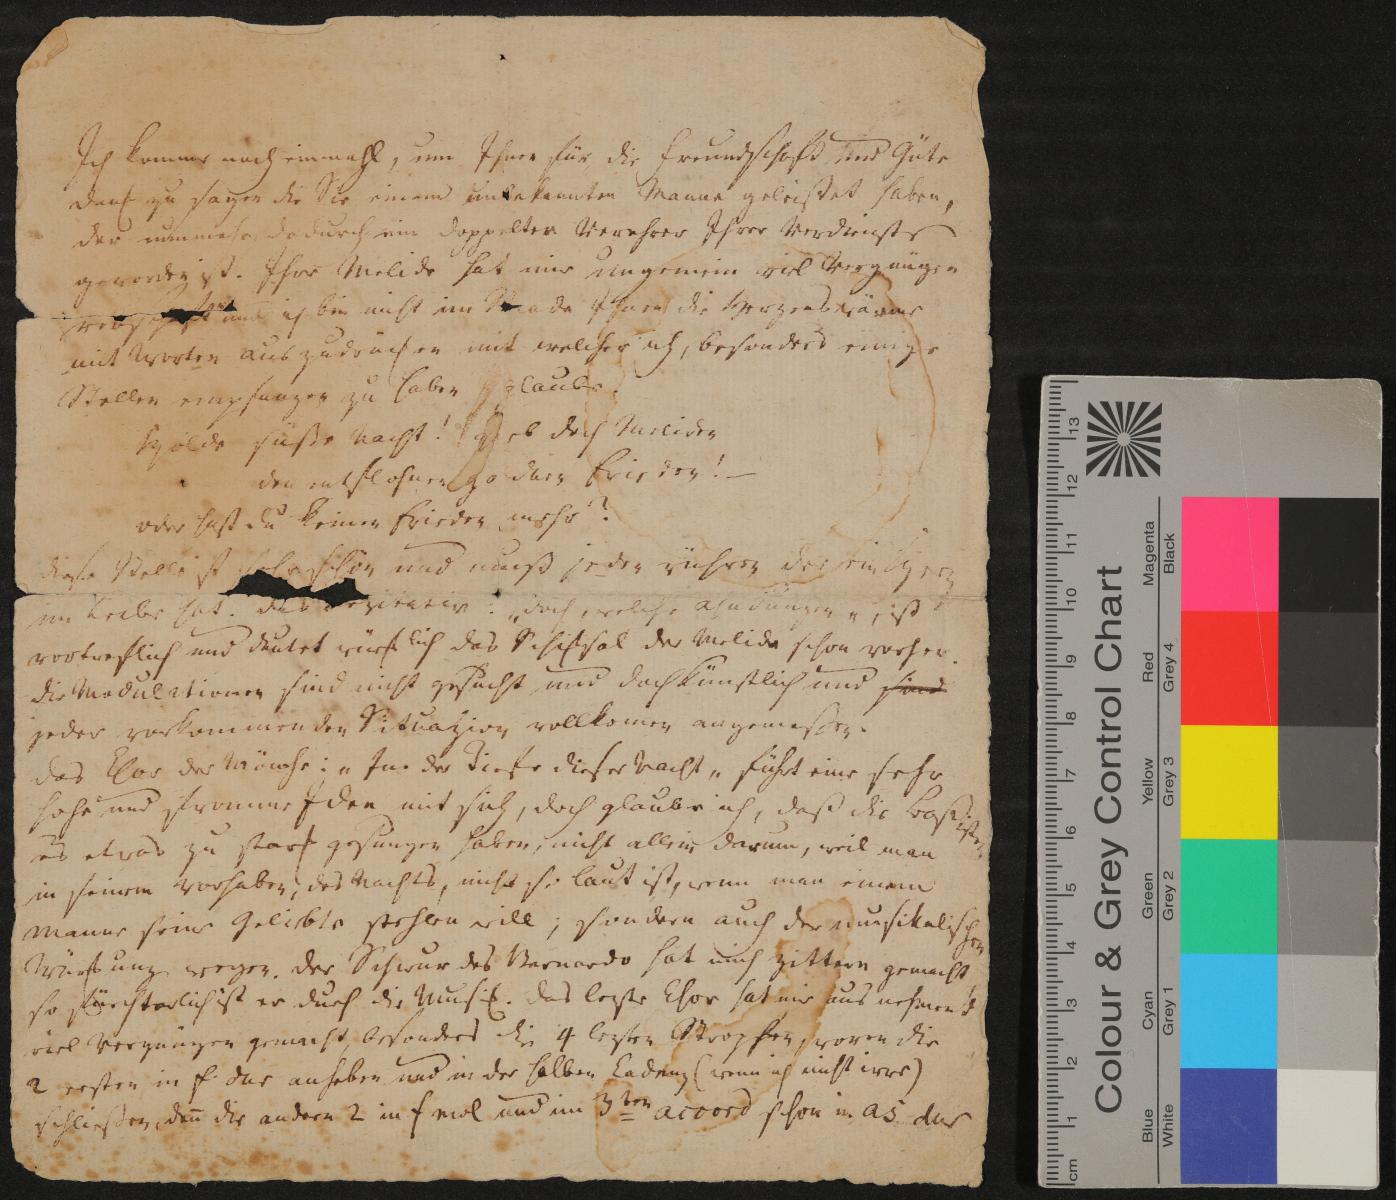 Ich komme noch einmahl, um Ihnen für die Freundschaft und Güte
dank zu sagen die Sie einem unbekannten Manne geleistet haben,
der nunmehr dadurch ein doppelter Verehrer Ihrer Verdienste
geworden ist. Ihre Melide hat mir ungemein viel Vergnügen
verschaft und ich bin nicht im Stande Ihnen die Herzenswärme
mit Worten auszudrücken mit welcher ich, besonders einige
Stellen empfangen zu haben glaube.
Holde süße Nacht! gieb doch Meliden
den entflohnen goldnen Frieden! –
oder hast du keinen Frieden mehr?
diese Stelle ist sehr schön und muß jeden rühren der ein Herz
im Leibe hat. das Rezitativ: „doch, welche Ahndungen„ ist
vortreflich und deutet würklich das Schicksal der Melide schon vorher.
die Modulationen sind nicht gesucht und doch künstlich und sind
jeder vorkommenden Situazion vollkomen angemeßen.
das Chor der Mönche: „In der Tiefe dieser Nacht„ führt eine sehr
hohe und fromme Idee mit sich, doch glaube ich, daß die Baßisten
es etwas zu stark gesungen haben, nicht allein darum, weil man
in seinem Vorhaben, des Nachts, nicht so laut ist, wenn man einem
Manne seine Geliebte stehlen will; sondern auch der musikalischen
Würkung wegen. der Schwur des Bernardo hat mich zittern gemacht
so fürchterlich ist er durch die Musik. das lezte Chor hat mir ausnehmend
viel Vergnügen gemacht besonders die 4 lezten Strophen, wovon die
2 ersten in f dur anheben und in der selben Cadenz (wenn ich nicht irre)
schließen, den̅ die andern 2 in f mol und im 3ten accord schon in As dur